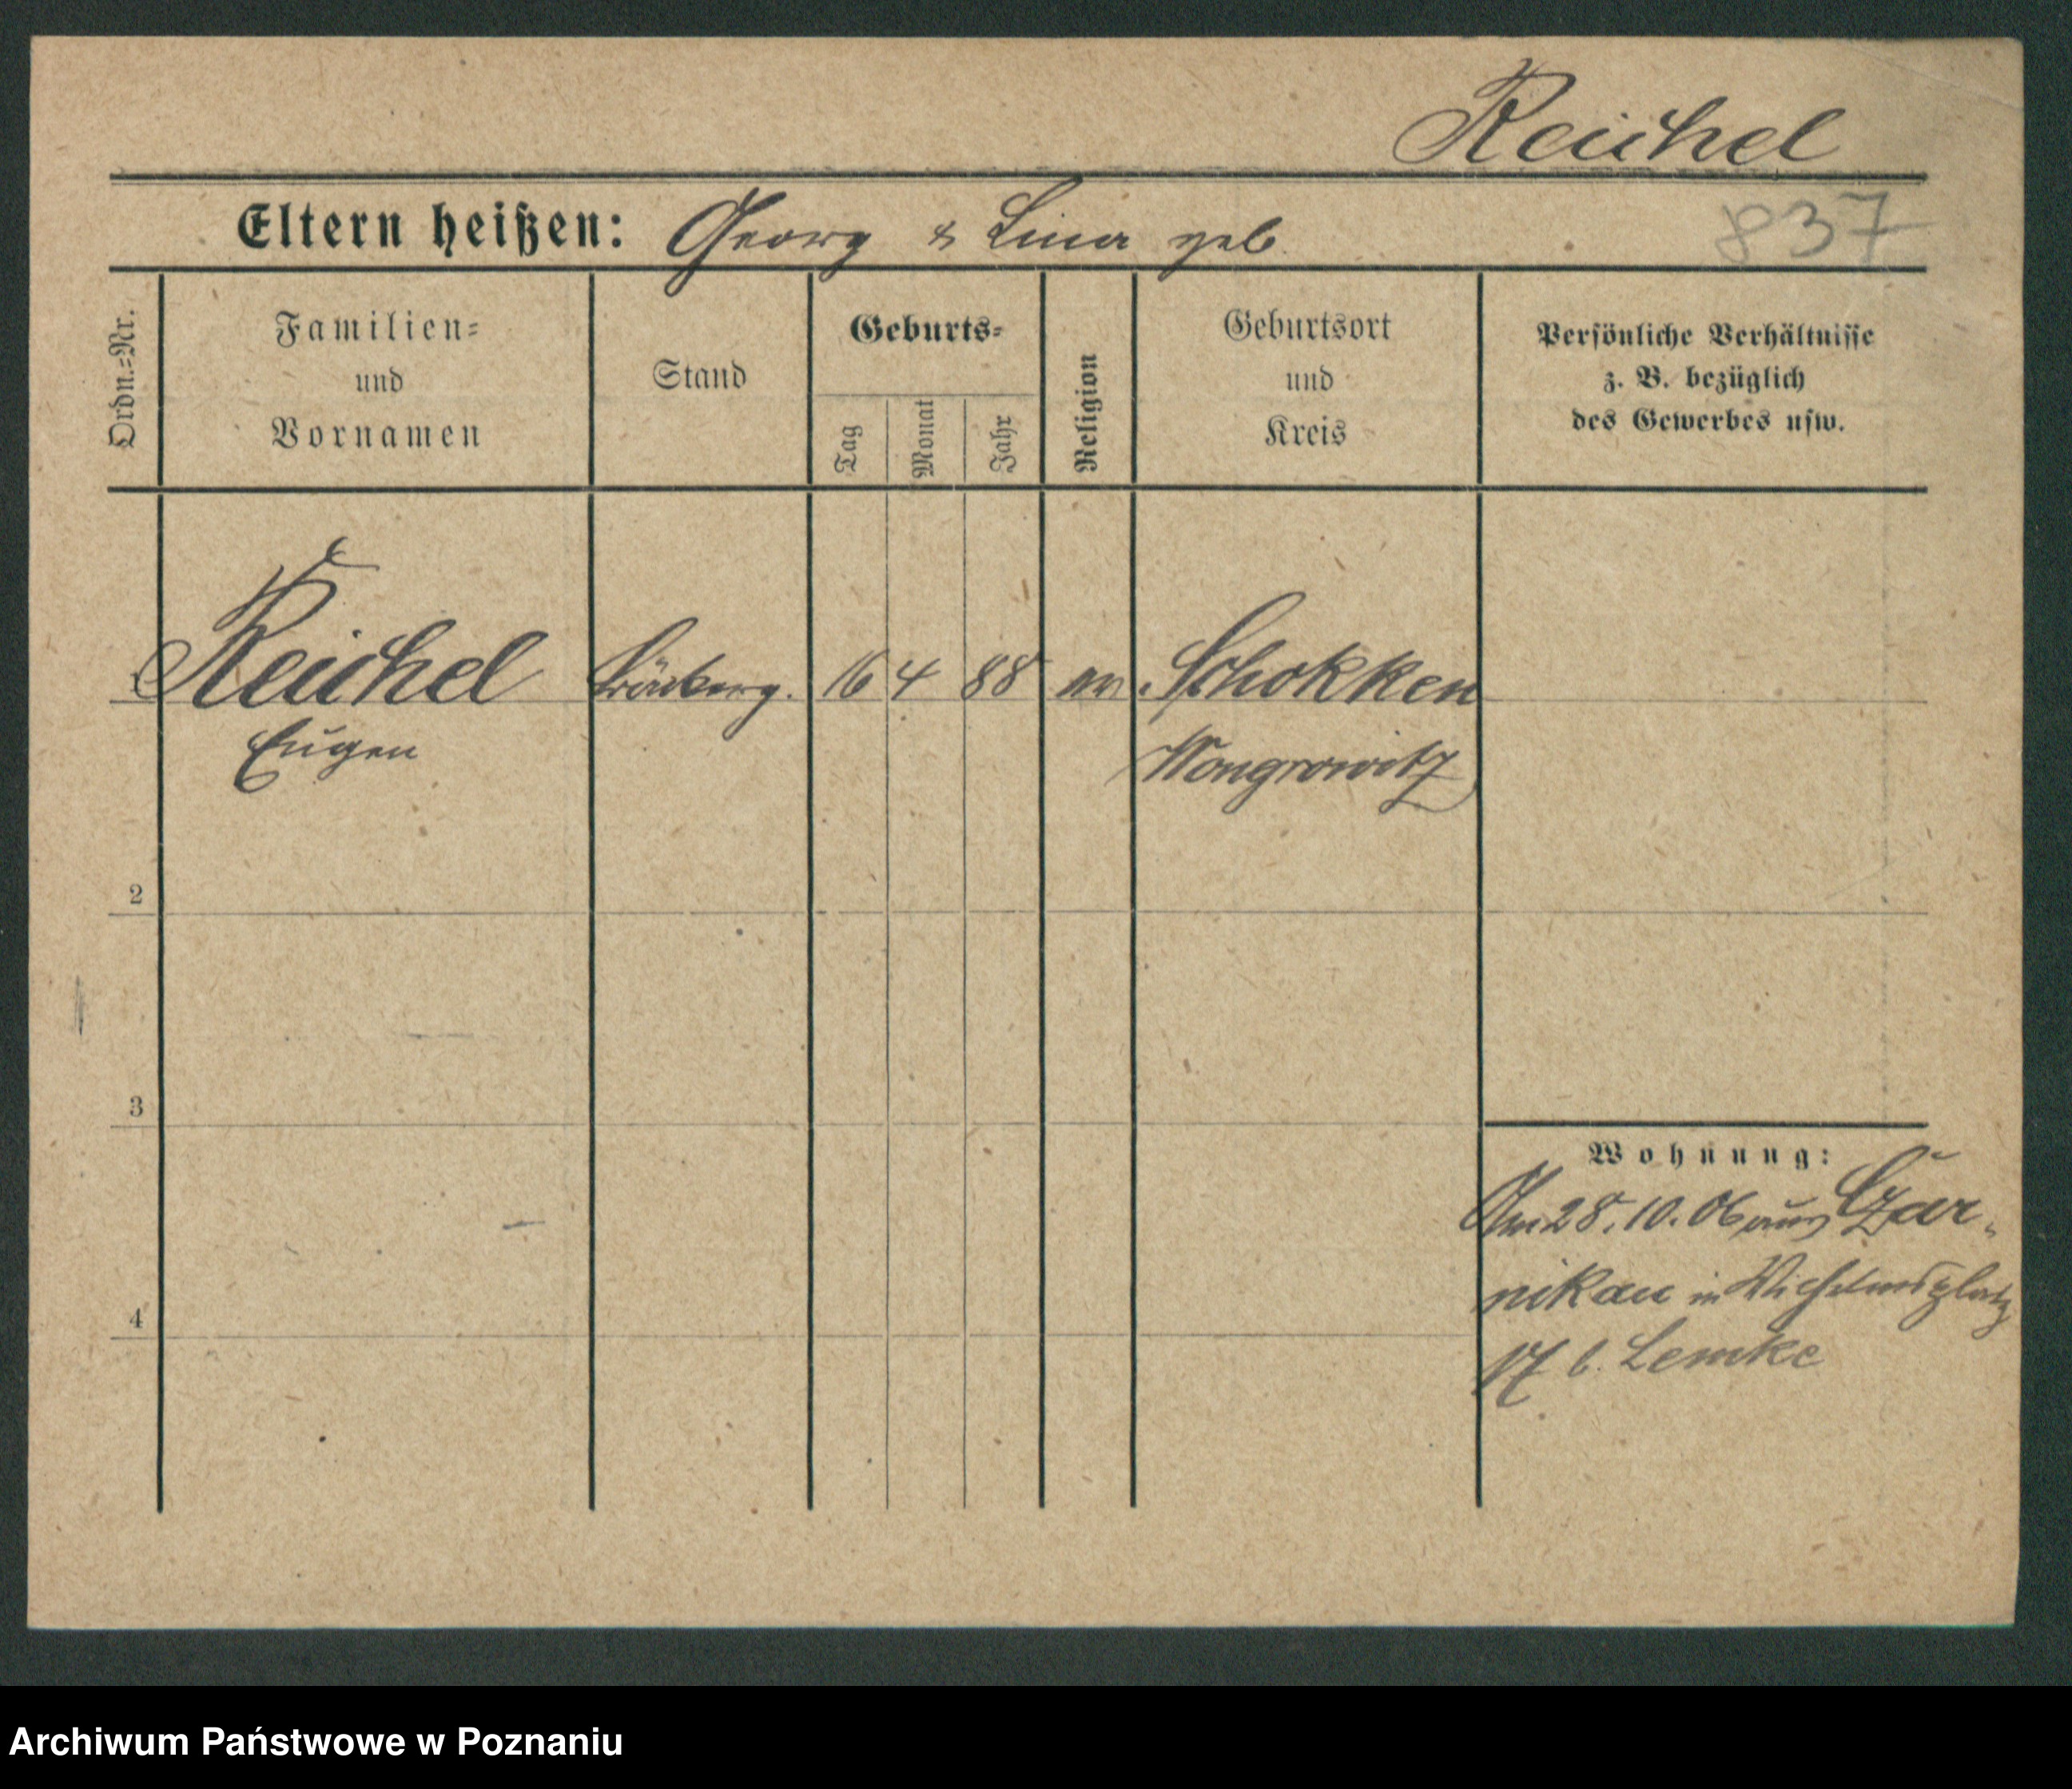 Reichel
Eltern heißen: Georg & Lina geb.
837
Ordn.=Nr.
Familien=
und
Vornamen
Stand
Geburts=
Tag
Monat
Jahr
Religion
Geburtsort
und
Kreis
Persönliche Verhältnisse
z. B. bezüglich
des Gewerbes usw.
1 Reichel 16 4 88 ev. Schokken
Eugen Wongrowitz
2
3
4
Wohnung:
Am 28. 10. 06 aus Czar-
nikau in Wilhelmsplatz
17 b. Lemke
Archiwum Państwowe w Poznaniu